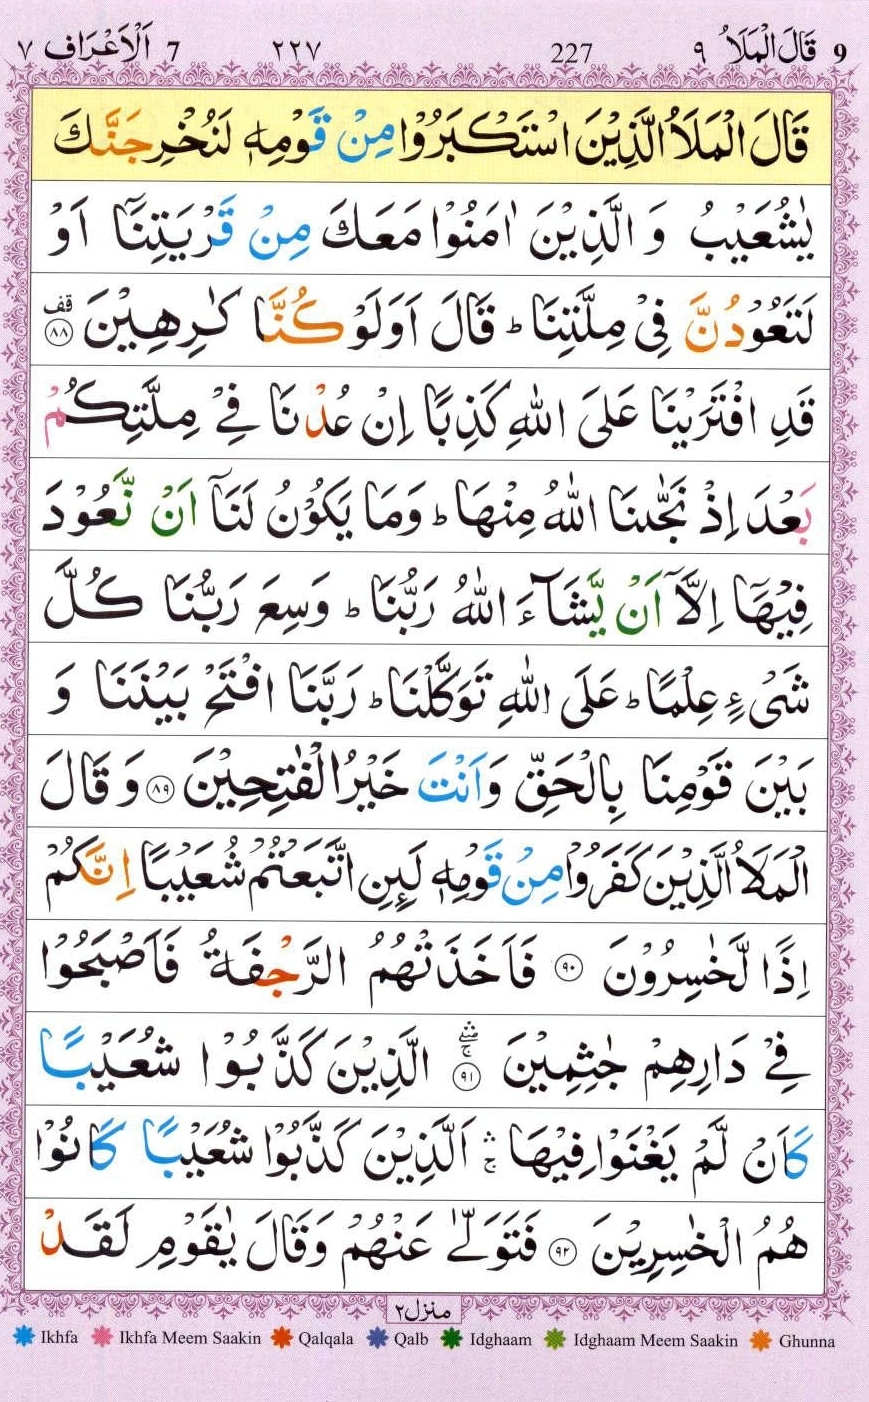 9 قَالَ الْمَلَاُ ٩ 227 ٢٢٧ 7 اَلْاَعْرَاف ٧
قَالَ الْمَلَاُ الَّذِيْنَ اسْتَكْبَرُوْا مِنْ قَوْمِهٖ لَنُخْرِجَنَّكَ
يٰشُعَيْبُ وَ الَّذِيْنَ اٰمَنُوْا مَعَكَ مِنْ قَرْيَتِنَاۤ اَوْ
لَتَعُوْدُنَّ فِيْ مِلَّتِنَا ؕ قَالَ اَوَلَوْ كُنَّا كٰرِهِيْنَ ۟ قف ٨٨
قَدِ افْتَرَيْنَا عَلَى اللّٰهِ كَذِبًا اِنْ عُدْنَا فِيْ مِلَّتِكُمْ
بَعْدَ اِذْ نَجّٰىنَا اللّٰهُ مِنْهَا ؕ وَمَا يَكُوْنُ لَنَاۤ اَنْ نَّعُوْدَ
فِيْهَاۤ اِلَّاۤ اَنْ يَّشَآءَ اللّٰهُ رَبُّنَا ؕ وَسِعَ رَبُّنَا كُلَّ
شَيْءٍ عِلْمًا ؕ عَلَى اللّٰهِ تَوَكَّلْنَا ؕ رَبَّنَا افْتَحْ بَيْنَنَا وَ
بَيْنَ قَوْمِنَا بِالْحَقِّ وَاَنْتَ خَيْرُ الْفٰتِحِيْنَ ٨٩ وَ قَالَ
الْمَلَاُ الَّذِيْنَ كَفَرُوْا مِنْ قَوْمِهٖ لَىِٕنِ اتَّبَعْتُمْ شُعَيْبًا اِنَّكُمْ
اِذًا لَّخٰسِرُوْنَ ٩٠ فَاَخَذَتْهُمُ الرَّجْفَةُ فَاَصْبَحُوْا
فِيْ دَارِهِمْ جٰثِمِيْنَ ٩١ ۛۚ الَّذِيْنَ كَذَّبُوْا شُعَيْبًا
كَاَنْ لَّمْ يَغْنَوْا فِيْهَا ۛۚ اَلَّذِيْنَ كَذَّبُوْا شُعَيْبًا كَانُوْا
هُمُ الْخٰسِرِيْنَ ٩٢ فَتَوَلّٰى عَنْهُمْ وَقَالَ يٰقَوْمِ لَقَدْ
منزل ٢
Ikhfa Ikhfa Meem Saakin Qalqala Qalb Idghaam Idghaam Meem Saakin Ghunna